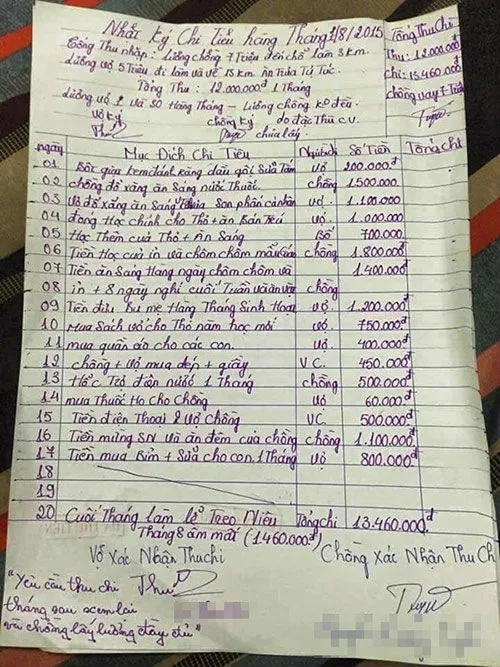 Nhất Ký Chi Tiêu hàng Tháng 1/8/2015
Tổng Thu Chi
Công Thu nhập: Lương chồng 7 Triệu đến chỗ làm 3 km.
Thu: 12.000.000đ
Lương vợ 5 Triệu đi làm và về 15 km. Ăn Trưa Tự Túc.
Chi: 13.460.000đ
Tổng Thu: 12.000.000đ 1 Tháng
chồng vay 7 Triệu
Lương vợ 2 và 50 Hàng Tháng - Lương chồng ko đều.
vợ ký
chồng ký
do đặc Thù C.v.
chưa lấy
ngày
Mục Đích Chi Tiêu
Người chi
Số Tiền
Tổng chi
01 Bột giặt kem đánh răng dầu gội Sữa Tắm vợ 200.000đ
02 chồng đổ xăng ăn Sáng nước Thuốc. chồng 1.500.000
03 Vợ đổ xăng ăn Sáng Son phấn cá nhân vợ 1.100.000
04 đóng Học chính cho Thỏ + ăn Bán Trú vợ 1.000.000
05 Học Thêm của Thỏ + Ăn Sáng Bố 700.000
06 Tiền Học của in và chôm chôm mẫu giáo chồng 1.800.000đ
07 Tiền ăn Sáng Hàng ngày chôm chôm và 1.400.000đ
08 in + 8 ngày nghỉ cuối Tuần và ăn vặt chồng
09 Tiền điếu bu mẹ Hàng Tháng Sinh Hoạt vợ 1.200.000đ
10 Mua Sách vở cho Thỏ năm học mới vợ 750.000đ
11 mua quần áo cho các con. vợ 400.000đ
12 chồng + vợ mua dép + giầy V.C. 450.000đ
13 Hốc Trả điện nước 1 Tháng chồng 500.000đ
14 mua Thuốc Ho cho Chồng vợ 60.000đ
15 Tiền điện Thoại 2 vợ Chồng VC 500.000đ
16 Tiền mừng SN và ăn đêm của chồng chồng 1.100.000đ
17 Tiền mua Bỉm + Sữa cho con. 1 Tháng vợ 800.000đ
18
19
20 Cuối Tháng làm lễ Treo Niêu Tổng chi 13.460.000đ
Tháng 8 âm mất (1.460.000đ)
Vợ Xác Nhận Thu chi
Chồng Xác Nhận Thu Chi
"Yêu cầu thu chi
tháng sau xem lại
và chồng lấy lương đầy đủ"